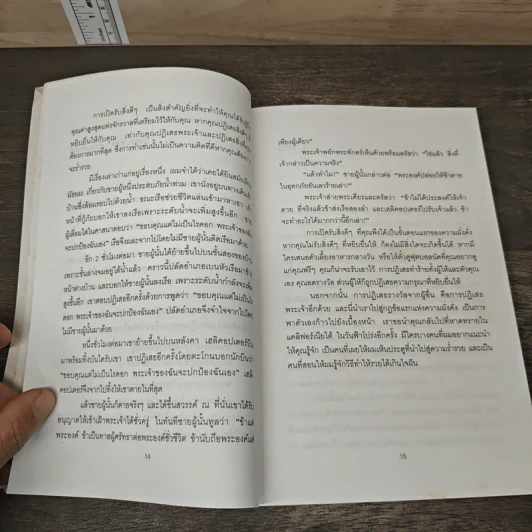 การเปิดรับสิ่งดีๆ เป็นสิ่งสำคัญยิ่งที่จะทำให้คุณได้รับ
คุณค่าสูงสุดแห่งจักรวาลที่เตรียมไว้ให้กับคุณ หากคุณปฏิเสธสิ่งดีๆ ที่
หยิบยื่นให้กับคุณ เท่ากับคุณปฏิเสธพระเจ้าและปฏิเสธสิ่งที่
ต้องการมากที่สุด ซึ่งการทำเช่นนั้นไม่เป็นความคิดที่ดีหากคุณต้องการ
จะร่ำรวย
มีเรื่องเล่าเก่าแก่อยู่เรื่องหนึ่ง ผมจำได้ว่าเคยได้ยินสมัยเป็น
น้อยมาก เกี่ยวกับชายผู้หนึ่งประสบภัยน้ำท่วม เขานั่งอยู่บน
บ้านซึ่งล้อมรอบไปด้วยน้ำ ขณะเรือช่วยชีวิตแล่นเข้ามาหาเขา เจ้า
หน้าที่กู้ภัยบอกให้เขาลงเรือเพราะระดับน้ำจะเพิ่มสูงขึ้นอีก ชาย
ผู้เลื่อมใสในศาสนาตอบว่า "ขอบคุณแต่ไม่เป็นไรดอก พระเจ้าของฉัน
จะปกป้องฉันเอง" เรือจึงผละจากไปโดยไม่มีชายผู้นั้นติดเรือมาด้วย
อีก 2 ชั่วโมงต่อมา ชายผู้นั้นได้ย้ายขึ้นไปบนชั้นสองของบ้าน
เพราะชั้นล่างจมอยู่ใต้น้ำแล้ว คราวนี้ปลัดอำเภอเบนหัวเรือมาข้าง
หน้าต่างบ้าน และบอกให้ชายผู้นั้นลงเรือ เพราะระดับน้ำกำลังจะเพิ่ม
สูงขึ้นอีก เขาตอบปฏิเสธอีกครั้งด้วยการพูดว่า "ขอบคุณแต่ไม่เป็นไร
ดอก พระเจ้าของฉันจะปกป้องฉันเอง" ปลัดอำเภอจึงจำใจจากไปโดย
ไม่มีชายผู้นั้นมาด้วย
หนึ่งชั่วโมงต่อมาเขาย้ายขึ้นไปบนหลังคา เฮลิคอปเตอร์บิน
มาพร้อมทิ้งบันไดรับเขา เขาปฏิเสธอีกครั้งโดยตะโกนบอกนักบินว่า
"ขอบคุณแต่ไม่เป็นไรดอก พระเจ้าของฉันจะปกป้องฉันเอง" เฮลิ
คอปเตอร์จึงจากไปทิ้งให้เขาตายในที่สุด
แล้วชายผู้นั้นก็ตายจริงๆ และได้ขึ้นสวรรค์ ณ ที่นั่นเขาได้รับ
อนุญาตให้เข้าเฝ้าพระเจ้าได้ชั่วครู่ ในทันทีชายผู้นั้นทูลว่า "ข้าแต่
พระองค์ ข้าเป็นทาสผู้ศรัทธาต่อพระองค์ชั่วชีวิต ข้านับถือพระองค์แต่
14
เพียงผู้เดียว"
พระเจ้าพยักพระพักตร์เห็นด้วยพร้อมตรัสว่า "ใช่แล้ว สิ่งที่
เจ้ากล่าวเป็นความจริง"
"แล้วทำไม!" ชายผู้นั้นกล่าวต่อ "พระองค์ปล่อยให้ข้าตาย
ในอุทกภัยอันเลวร้ายเล่า?"
พระเจ้าส่ายพระเศียรและตรัสว่า "ข้าไม่ได้ประสงค์ให้เจ้า
ตาย ที่จริงแล้วข้าส่งเรือสองลำ และเฮลิคอปเตอร์ไปรับเจ้าแล้ว ข้า
จะทำอะไรได้มากกว่านี้อีกเล่า!"
การเปิดรับสิ่งดีๆ ที่คุณพึงได้เป็นขั้นตอนแรกของความมั่งคั่ง
หากคุณไม่รับสิ่งดีๆ ที่หยิบยื่นให้ ก็คงไม่มีสิ่งใดจะเกิดขึ้นได้ หากมี
ใครเสนอตัวเลี้ยงอาหารกลางวัน หรือให้ตั๋วดูฟุตบอลนัดที่คุณอยากดู
แก่คุณฟรีๆ คุณก็น่าจะรับเอาไว้ การปฏิเสธทำร้ายทั้งผู้ให้และตัวคุณ
เอง คุณอดรางวัล ส่วนผู้ให้ก็ถูกปฏิเสธความกรุณาที่หยิบยื่นให้
นอกจากนั้น การปฏิเสธรางวัลจากผู้อื่น คือการปฏิเสธ
พระเจ้าอีกด้วย และนี่นำเราไปสู่กฎข้อแรกแห่งความมั่งคั่ง เป็นการ
พาตัวเองก้าวไปยังเบื้องหน้า เราขอนำคุณกลับไปที่หาดทรายใน
แคลิฟอร์เนียได้ ในวันฟ้าโปร่งอีกครั้ง มีใครบางคนที่ผมอยากแนะนำ
ให้คุณรู้จัก เป็นคนที่เผยให้ผมเห็นประตูที่นำไปสู่ความร่ำรวย และเป็น
คนที่สอนให้ผมรู้จักวิธีทำให้รวยได้เกินใจฝัน
15